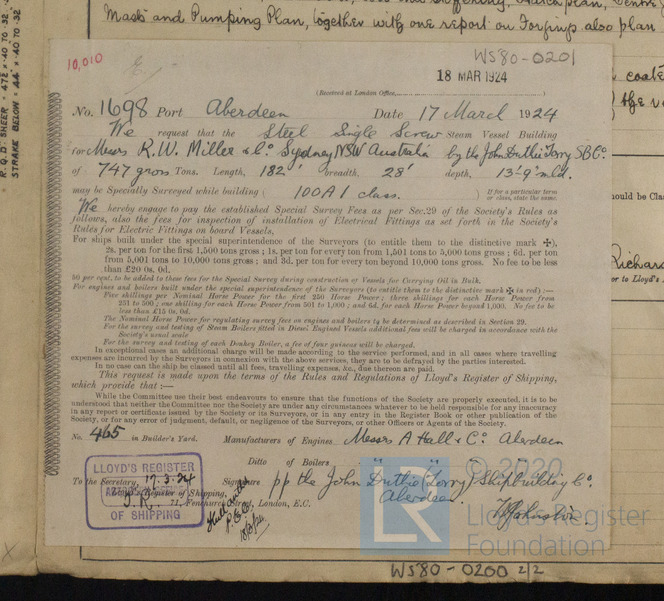 Masts and Pumping Plan, together with one report on Forgings also plan
R.Q.D. SHEER = 47¼ × .40 TO .32
STRAKE BELOW = 44 × .40 TO .32
WS80-0201
10,010
18 MAR 1924
(Received at London Office, )
No. 1698 Port Aberdeen Date 17 March 1924
We request that the Steel Single Screw Steam Vessel Building
for Messrs R.W. Miller & Co. Sydney NSW Australia by the John Duthie Torry S.B.Co.
of 747 gross Tons. Length, 182' breadth, 28' depth, 13'-9" mld.
may be Specially Surveyed while building ( 100A1 class. ) If for a particular term or class, state the same.
We hereby engage to pay the established Special Survey Fees as per Sec. 29 of the Society's Rules as
follows, also the fees for inspection of installation of Electrical Fittings as set forth in the Society's
Rules for Electric Fittings on board Vessels.
For ships built under the special superintendence of the Surveyors (to entitle them to the distinctive mark ✠),
2s. per ton for the first 1,500 tons gross; 1s. per ton for every ton from 1,501 to 5,000 tons gross; 6d. per ton
from 5,001 to 10,000 tons gross; and 3d. per ton for every ton beyond 10,000 tons gross. No fee to be less
than £20 0s. 0d.
50 per cent. to be added to these fees for the Special Survey during construction of Vessels for Carrying Oil in Bulk.
For engines and boilers built under the special superintendence of the Surveyors (to entitle them to the distinctive mark ✠ in red):—
Five shillings per Nominal Horse Power for the first 250 Horse Power; three shillings for each Horse Power from
251 to 500; one shilling for each Horse Power from 501 to 1,000; and 6d. for each Horse Power beyond 1,000. No fee to be
less than £15 0s. 0d.
The Nominal Horse Power for regulating survey fees on engines and boilers to be determined as described in Section 29.
For the survey and testing of Steam Boilers fitted in Diesel Engined Vessels additional fees will be charged in accordance with the
Society's usual scale
For the survey and testing of each Donkey Boiler, a fee of four guineas will be charged.
In exceptional cases an additional charge will be made according to the service performed, and in all cases where travelling
expenses are incurred by the Surveyors in connection with the above services, they are to be defrayed by the parties interested.
In no case can the ship be classed until all fees, travelling expenses, &c., due thereon are paid.
This request is made upon the terms of the Rules and Regulations of Lloyd's Register of Shipping,
which provide that:—
While the Committee use their best endeavours to ensure that the functions of the Society are properly executed, it is to be
understood that neither the Committee nor the Society are under any circumstances whatever to be held responsible for any inaccuracy
in any report or certificate issued by the Society or its Surveyors, or in any entry in the Register Book or other publication of the
Society, or for any error of judgment, default, or negligence of the Surveyors, or other Officers or Agents of the Society.
No. 465 in Builder's Yard. Manufacturers of Engines Messrs A Hall & Co. Aberdeen
Ditto of Boilers " " "
To the Secretary, Signature pp the John Duthie (Torry) Shipbuilding Co.
Lloyd's Register of Shipping, Aberdeen.
71, Fenchurch Street, London, E.C.
LLOYD'S REGISTER
17.3.24
OF SHIPPING
© 2020
LR
Lloyd's Register
Foundation
WS80-0200 2/2